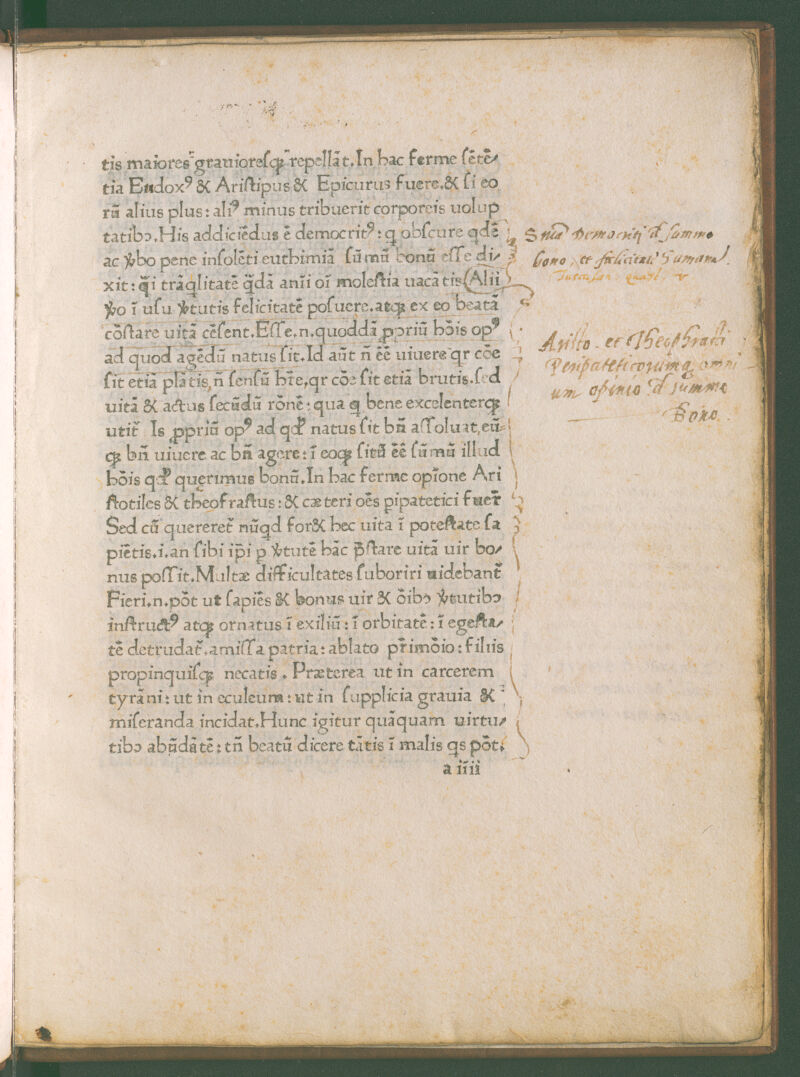 tis maiores grauioresqꝫ repellāt.In hac ferme sētē⸗
tia Eudoxꝰ & Aristipus & Epicurus fuere.& si eo
rū alius plus: aliꝰ minus tribuerit corporeis uolup
tatibꝫ.His addiciēdus ē democritꝰ: q obscure qdē
ac ꝟbo pene insolēti euthimiā sūmū bonū esse di⸗
xit: q̄i trāqlitatē q̄dā anīi oī molestia uacātis(Alii
ꝟo ī usu ꝟtutis felicitatē posuere.atqꝫ ex eo beatā
cōstare uitā cēsent.Esse.n.quoddā ꝓpriū hōis opꝰ
ad quod agēdū natus sit.Id aūt n̄ ēē uiuere qr cōe
sit etiā plātis, n̄ sensū hr̄e,qr cōe sit etiā brutis.sed
uitā & actus secūdū rōnē: qua q bene excelenterqꝫ
utit̄ Is ꝓpriū opꝰ ad qd̄ natus sit bn̄ assoluat,eū⸗
qꝫ bn̄ uiuere ac bn̄ agere: ī eoqꝫ sitū ēē sūmū illud
hōis qd̄ querimus bonū.In hac ferme opīone Ari
stotiles & theofrastus: & cæteri oēs pipatetici fuer̄
Sed cū quereret̄ nūqd for& hec uita ī potestate sa
piētis.i.an sibi ip̄i p ꝟtutē hāc p̄stare uitā uir bo⸗
nus possit.Multæ difficultates suboriri uidebant̄
Fieri.n.pōt ut sapiēs & bonus uir & oībꝫ ꝟtutibꝫ
instructꝰ atqꝫ ornatus ī exiliū: ī orbitatē: ī egesta⸗
tē detrudat̄.amissa patria: ablato pr̄imōio: filiis
propinquisqꝫ necatis . Præterea ut in carcerem
tyrāni: ut in eculeum: ut in supplicia grauia &
miseranda incidat.Hunc igitur quāquam uirtu⸗
tibꝫ abūdātē: tn̄ beatū dicere tātis ī malis qs pōt.
a iiii
Democritj d summo
bono, et felicitate humana
Aristo. et Theophrasti
Peripateticorumq; omni
um opinio d summo
Bono.